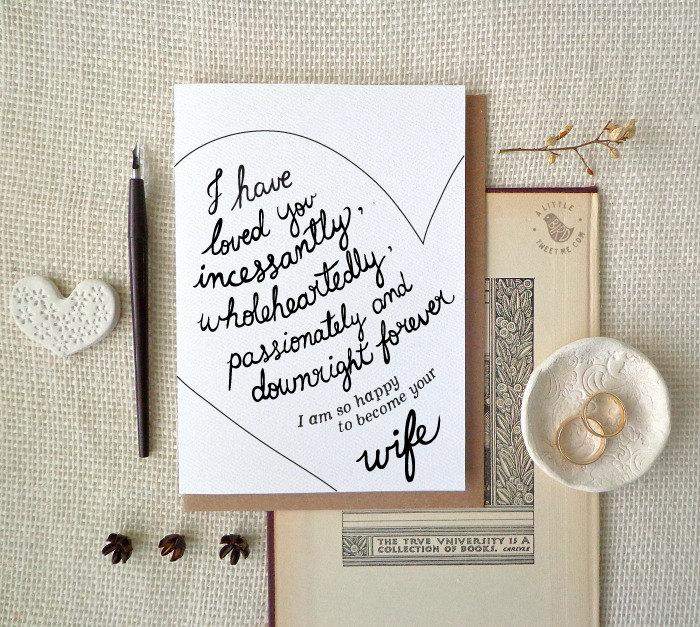 I have
loved you
incessantly,
wholeheartedly,
passionately and
downright forever
I am so happy
to become your
wife
A LITTLE
TWEETME.COM
THE TRVE VNIVERSITY IS A
COLLECTION OF BOOKS. CARLYLE